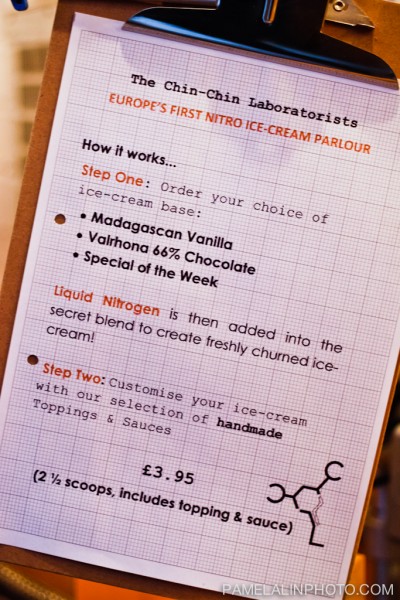 The Chin-Chin Laboratorists
EUROPE'S FIRST NITRO ICE-CREAM PARLOUR
How it works...
Step One: Order your choice of
ice-cream base:
• Madagascan Vanilla
• Valrhona 66% Chocolate
• Special of the Week
Liquid Nitrogen is then added into the
secret blend to create freshly churned ice-
cream!
Step Two: Customise your ice-cream
with our selection of handmade
Toppings & Sauces
£3.95
(2 ½ scoops, includes topping & sauce)
PAMELALINPHOTO.COM